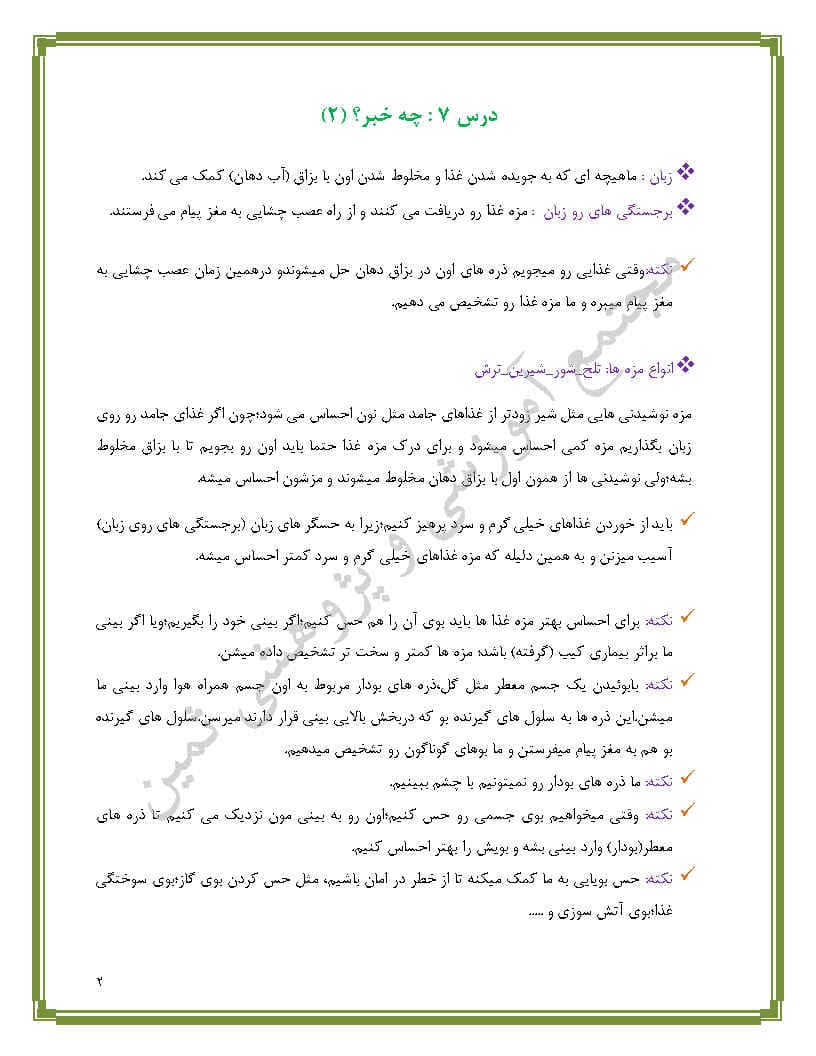 درس ۷ : چه خبر؟ (۲)
زبان : ماهیچه ای که به جویده شدن غذا و مخلوط شدن اون با بزاق (آب دهان) کمک می کند.
برجستگی های رو زبان : مزه غذا رو دریافت می کنند و از راه عصب چشایی به مغز پیام می فرستند.
نکته:وقتی غذایی رو میجویم ذره های اون در بزاق دهان حل میشوندو درهمین زمان عصب چشایی به
مغز پیام میبره و ما مزه غذا رو تشخیص می دهیم.
انواع مزه ها: تلخ_شور_شیرین_ترش
مزه نوشیدنی هایی مثل شیر زودتر از غذاهای جامد مثل نون احساس می شود؛چون اگر غذای جامد رو روی
زبان بگذاریم مزه کمی احساس میشود و برای درک مزه غذا حتما باید اون رو بجویم تا با بزاق مخلوط
بشه؛ولی نوشیدنی ها از همون اول با بزاق دهان مخلوط میشوند و مزشون احساس میشه.
باید از خوردن غذاهای خیلی گرم و سرد پرهیز کنیم؛زیرا به حسگر های زبان (برجستگی های روی زبان)
آسیب میزنن و به همین دلیله که مزه غذاهای خیلی گرم و سرد کمتر احساس میشه.
نکته: برای احساس بهتر مزه غذا ها باید بوی آن را هم حس کنیم؛اگر بینی خود را بگیریم؛ویا اگر بینی
ما براثر بیماری کیپ (گرفته) باشد؛ مزه ها کمتر و سخت تر تشخیص داده میشن.
نکته: بابوئیدن یک جسم معطر مثل گل،ذره های بودار مربوط به اون جسم همراه هوا وارد بینی ما
میشن.این ذره ها به سلول های گیرنده بو که دربخش بالایی بینی قرار دارند میرسن.سلول های گیرنده
بو هم به مغز پیام میفرستن و ما بوهای گوناگون رو تشخیص میدهیم.
نکته: ما ذره های بودار رو نمیتونیم با چشم ببینیم.
نکته: وقتی میخواهیم بوی جسمی رو حس کنیم؛اون رو به بینی مون نزدیک می کنیم تا ذره های
معطر(بودار) وارد بینی بشه و بویش را بهتر احساس کنیم.
نکته: حس بویایی به ما کمک میکنه تا از خطر در امان باشیم، مثل حس کردن بوی گاز؛بوی سوختگی
غذا؛بوی آتش سوزی و .....
مجتمع آموزشی و پژوهشی ثمین
۲